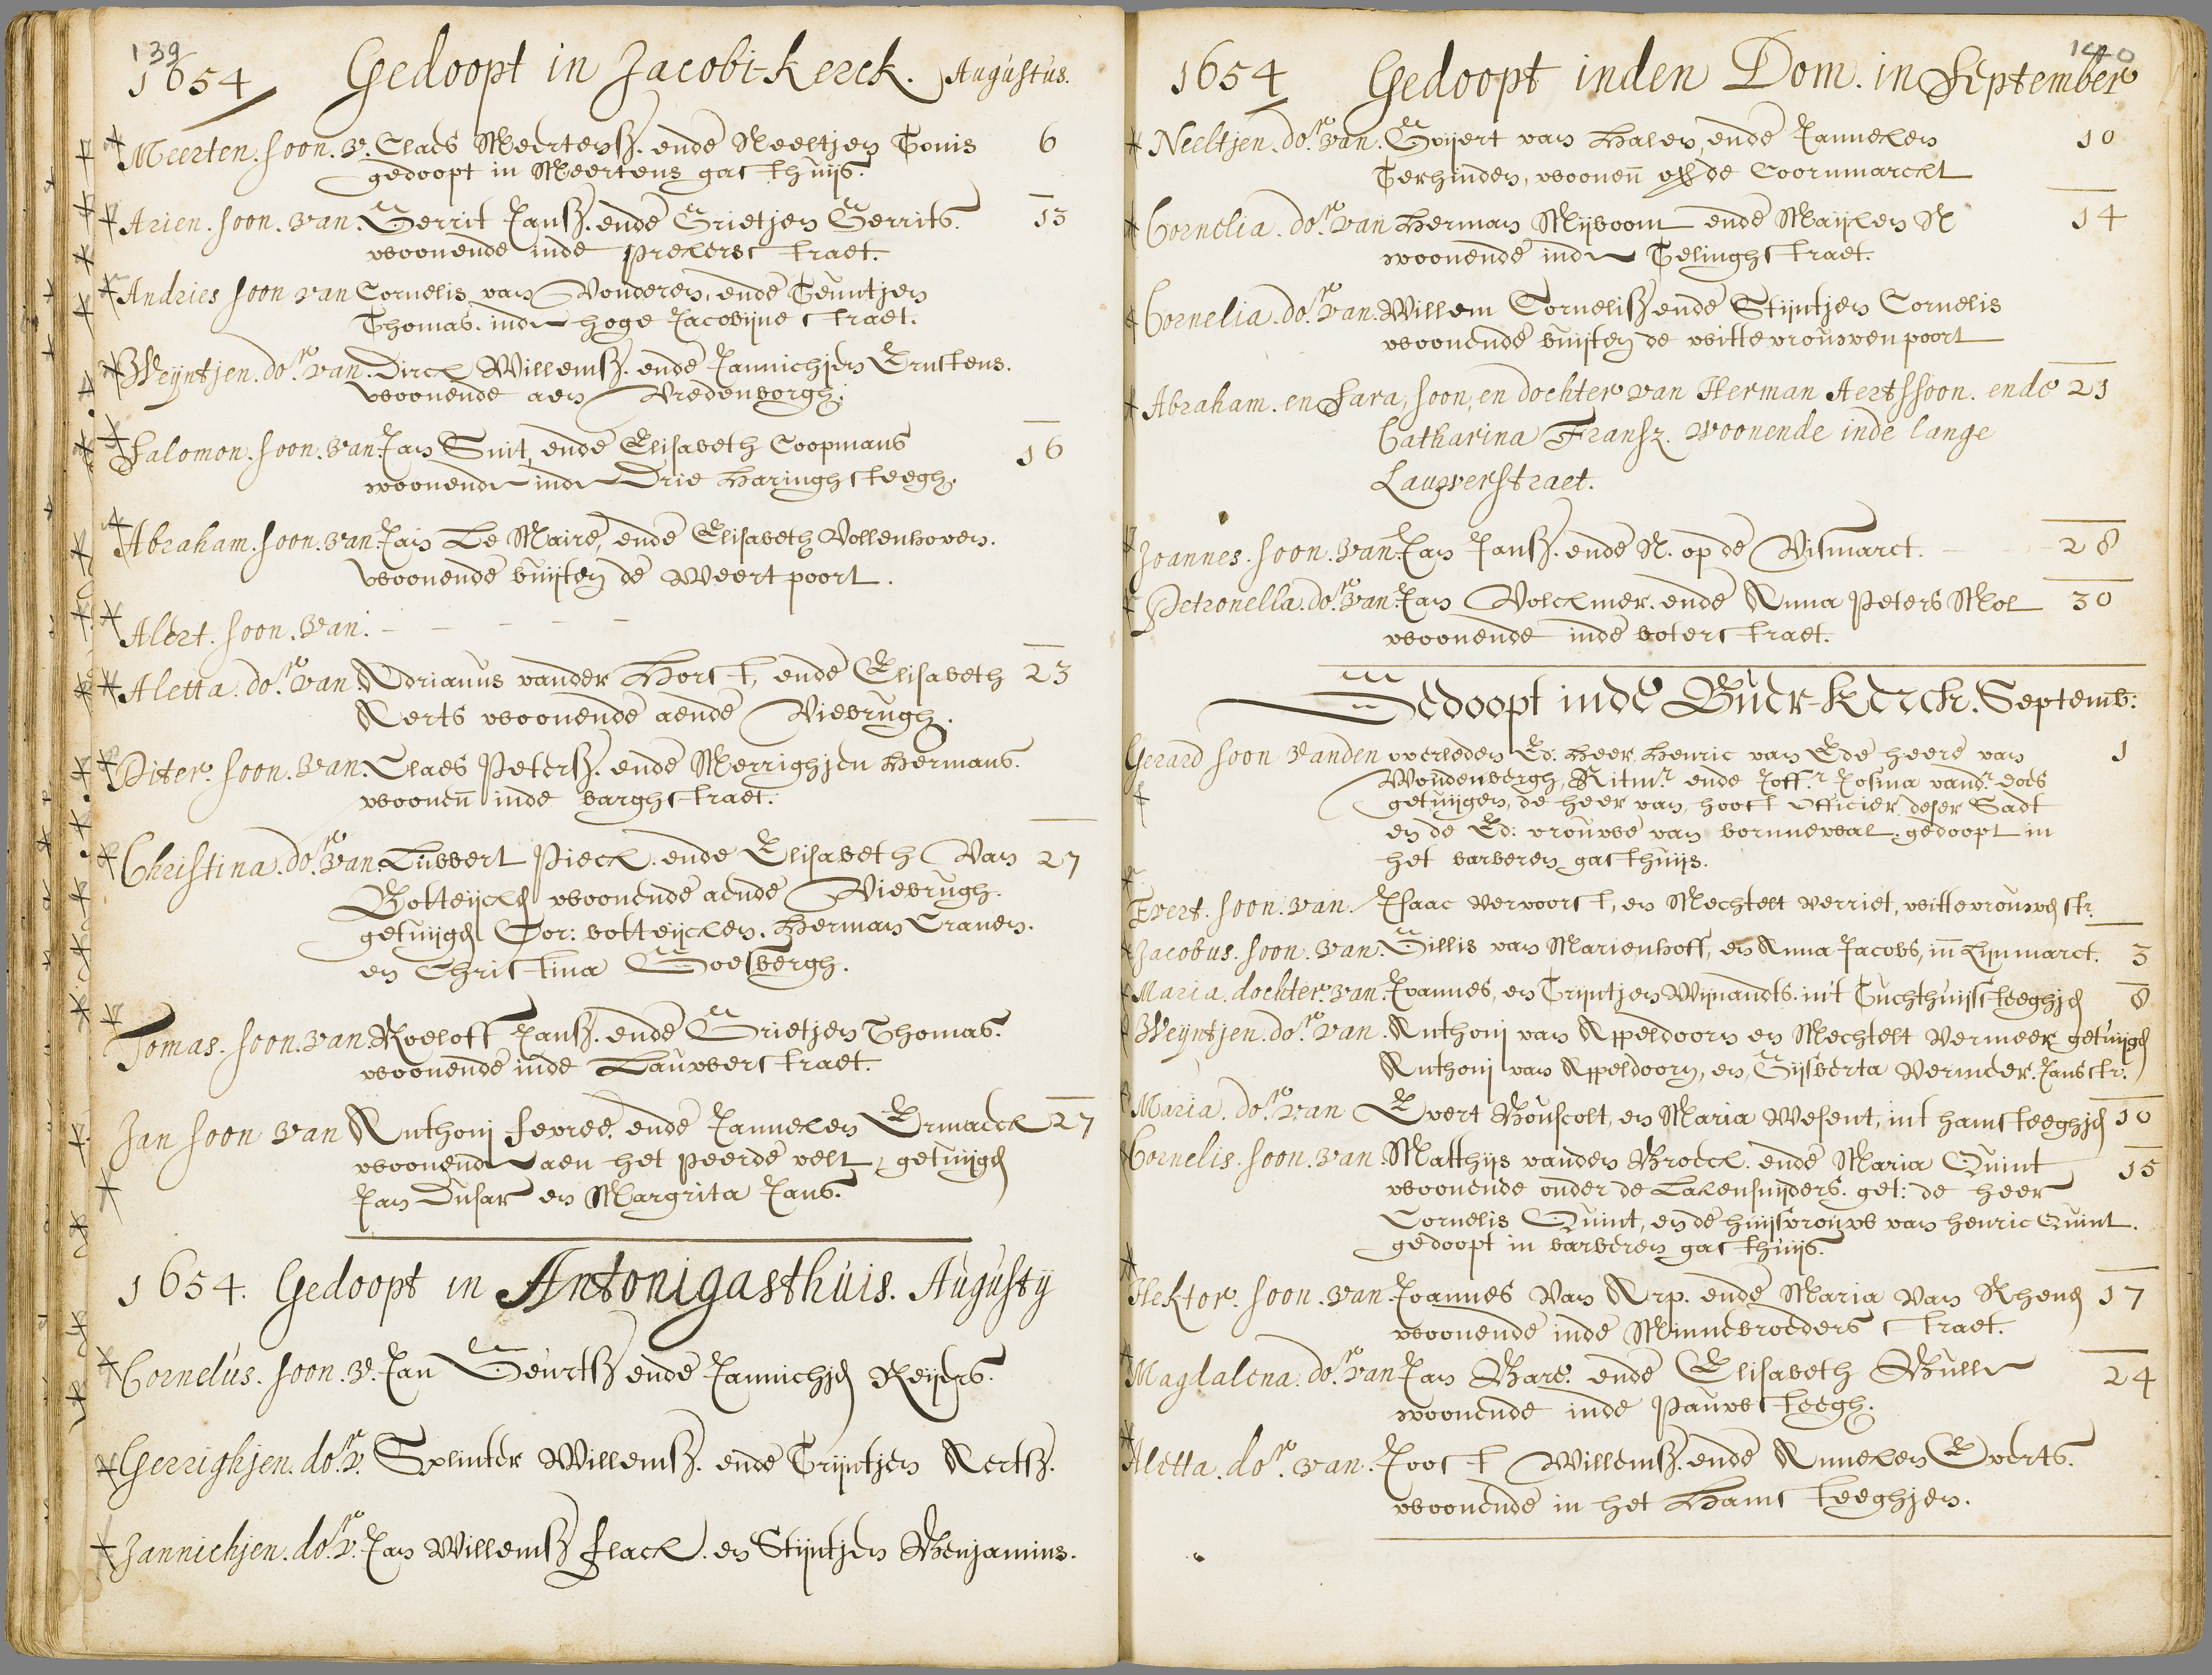 139
1654 Gedoopt in Jacobi-Kerck. Augustus.
Meerten. soon. v. Claes Meertensz. ende Neeltjen Tonis 6
gedoopt in Meertens gasthuijs.
Arien. soon. van. Gerrit Jansz. ende Grietjen Gerrits. 13
woonende inde Prekerstraet.
Andries soon van Cornelis van Vonderen, ende Teuntjen
Thomas. inde hoge Jacobijne straet.
Weyntjen. dor. van. Dirck Willemsz. ende Jannichjen Ernstens.
woonende aen Vredenborgh.
Salomon. soon. van. Jan Smit, ende Elisabeth Coopmans 16
woonende inde Drie Haringhsteegh.
Abraham. soon. van. Jan Le Maire, ende Elisabeth Vollenhoven.
woonende buijten de Weertpoort.
Alert. soon. van. – – – – –
Aletta. dor. van. Adrianus vander Horst, ende Elisabeth 23
Aerts woonende aende Viebrugh.
Piter. soon. van. Claes Petersz. ende Merrighjen Hermans.
woonen inde barghstraet.
Christina. dor. van. Lubbert Pieck. ende Elisabeth Van 27
Botteijcken woonende aende Viebrugh.
getuijgen Cor: botteijcken. Herman Cranen.
en Christina Goesbergh.
Tomas. soon. van. Roeloff Jansz. ende Grietjen Thomas.
woonende inde Lauwerstraet.
Jan soon van Anthoni fevree. ende Janneken Ermaeck 27
woonende aen het Peerde velt, getuijgen
Jan Dusar en Margrita Jans.
1654. Gedoopt in Antonigasthuis. Augusty
Cornelus. soon. v. Jan Geurtsz ende Jannichjen Reijers.
Gerrighjen. dor. v. Splinter Willemsz. ende Trijntjen Aertsz.
Jannichjen. dor. v. Jan Willemsz flack. en Stijntjen Benjamins.
140
1654 Gedoopt inden Dom. in September
Neeltjen. dor. van. Goijert van Halen, ende Janneken 10
Terhinden, woonen op de Coornmarckt
Cornelia. dor. van Herman Mijboom ende Maijken N 14
woonende inde Telinghstraet.
Cornelia. dor. van. Willem Cornelisz ende Stijntjen Cornelis
woonende buijten de wittevrouwenpoort
Abraham. en Sara, soon, en dochter van Herman Aertssoon. ende 21
Catharina Fransz. woonende inde lange
Lauwerstraet.
Joannes. soon. van. Jan Jansz. ende N. op de Vismarct. 28
Petronella. dor. van. Jan Volckmer. ende Anna Peters Mol 30
woonende inde boterstraet.
Gedoopt inde Buer-Kerck. Septemb:
Gerard soon vanden overleden Ed. Heer Henric van Ede heere van 1
Woudenbergh, Ritmr. ende Joffr. Josina vandr. does
getuijgen, de heer van hooct officier deser Stadt
en de Ed: vrouwe van bornnewal. gedoopt in
het barberen gasthuijs.
Evert. soon. van. Isaac vervoorst, en Mechtelt verriet, wittevrouwenstr.
Jacobus. soon. van. Gillis van Marienhoff, en Anna Jacobs, in Lijnmarct. 3
Maria. dochter. van. Joannes, en Trijntjen Wijnandts. in't Tuchthuijssteeghjen 8
Weyntjen. dor. van. Anthoni van Appeldoorn en Mechtelt Vermeer getuijgen
Anthoni van Appeldoorn, en Gijsberta Vermeer. Jansstr.
Maria. dor. van Evert Bouscolt, en Maria Wesent, int hamsteeghjen 10
Cornelis. soon. van. Matthijs vanden Broeck. ende Maria Quint 15
woonende onder de Lakensnijders. get: de heer
Cornelis Quint, en de huijsvrouwe van henric Quint.
gedoopt in barberen gasthuijs.
Hektor. soon. van. Joannes Van Arp. ende Maria van Rhenen 17
woonende inde Minnebroeders straet.
Magdalena. dor. van Jan Bare. ende Elisabeth Bulle 24
woonende inde Pauwesteegh.
Aletta. dor. van. Joost Willemsz. ende Anneken Everts.
woonende in het Hamsteeghjen.